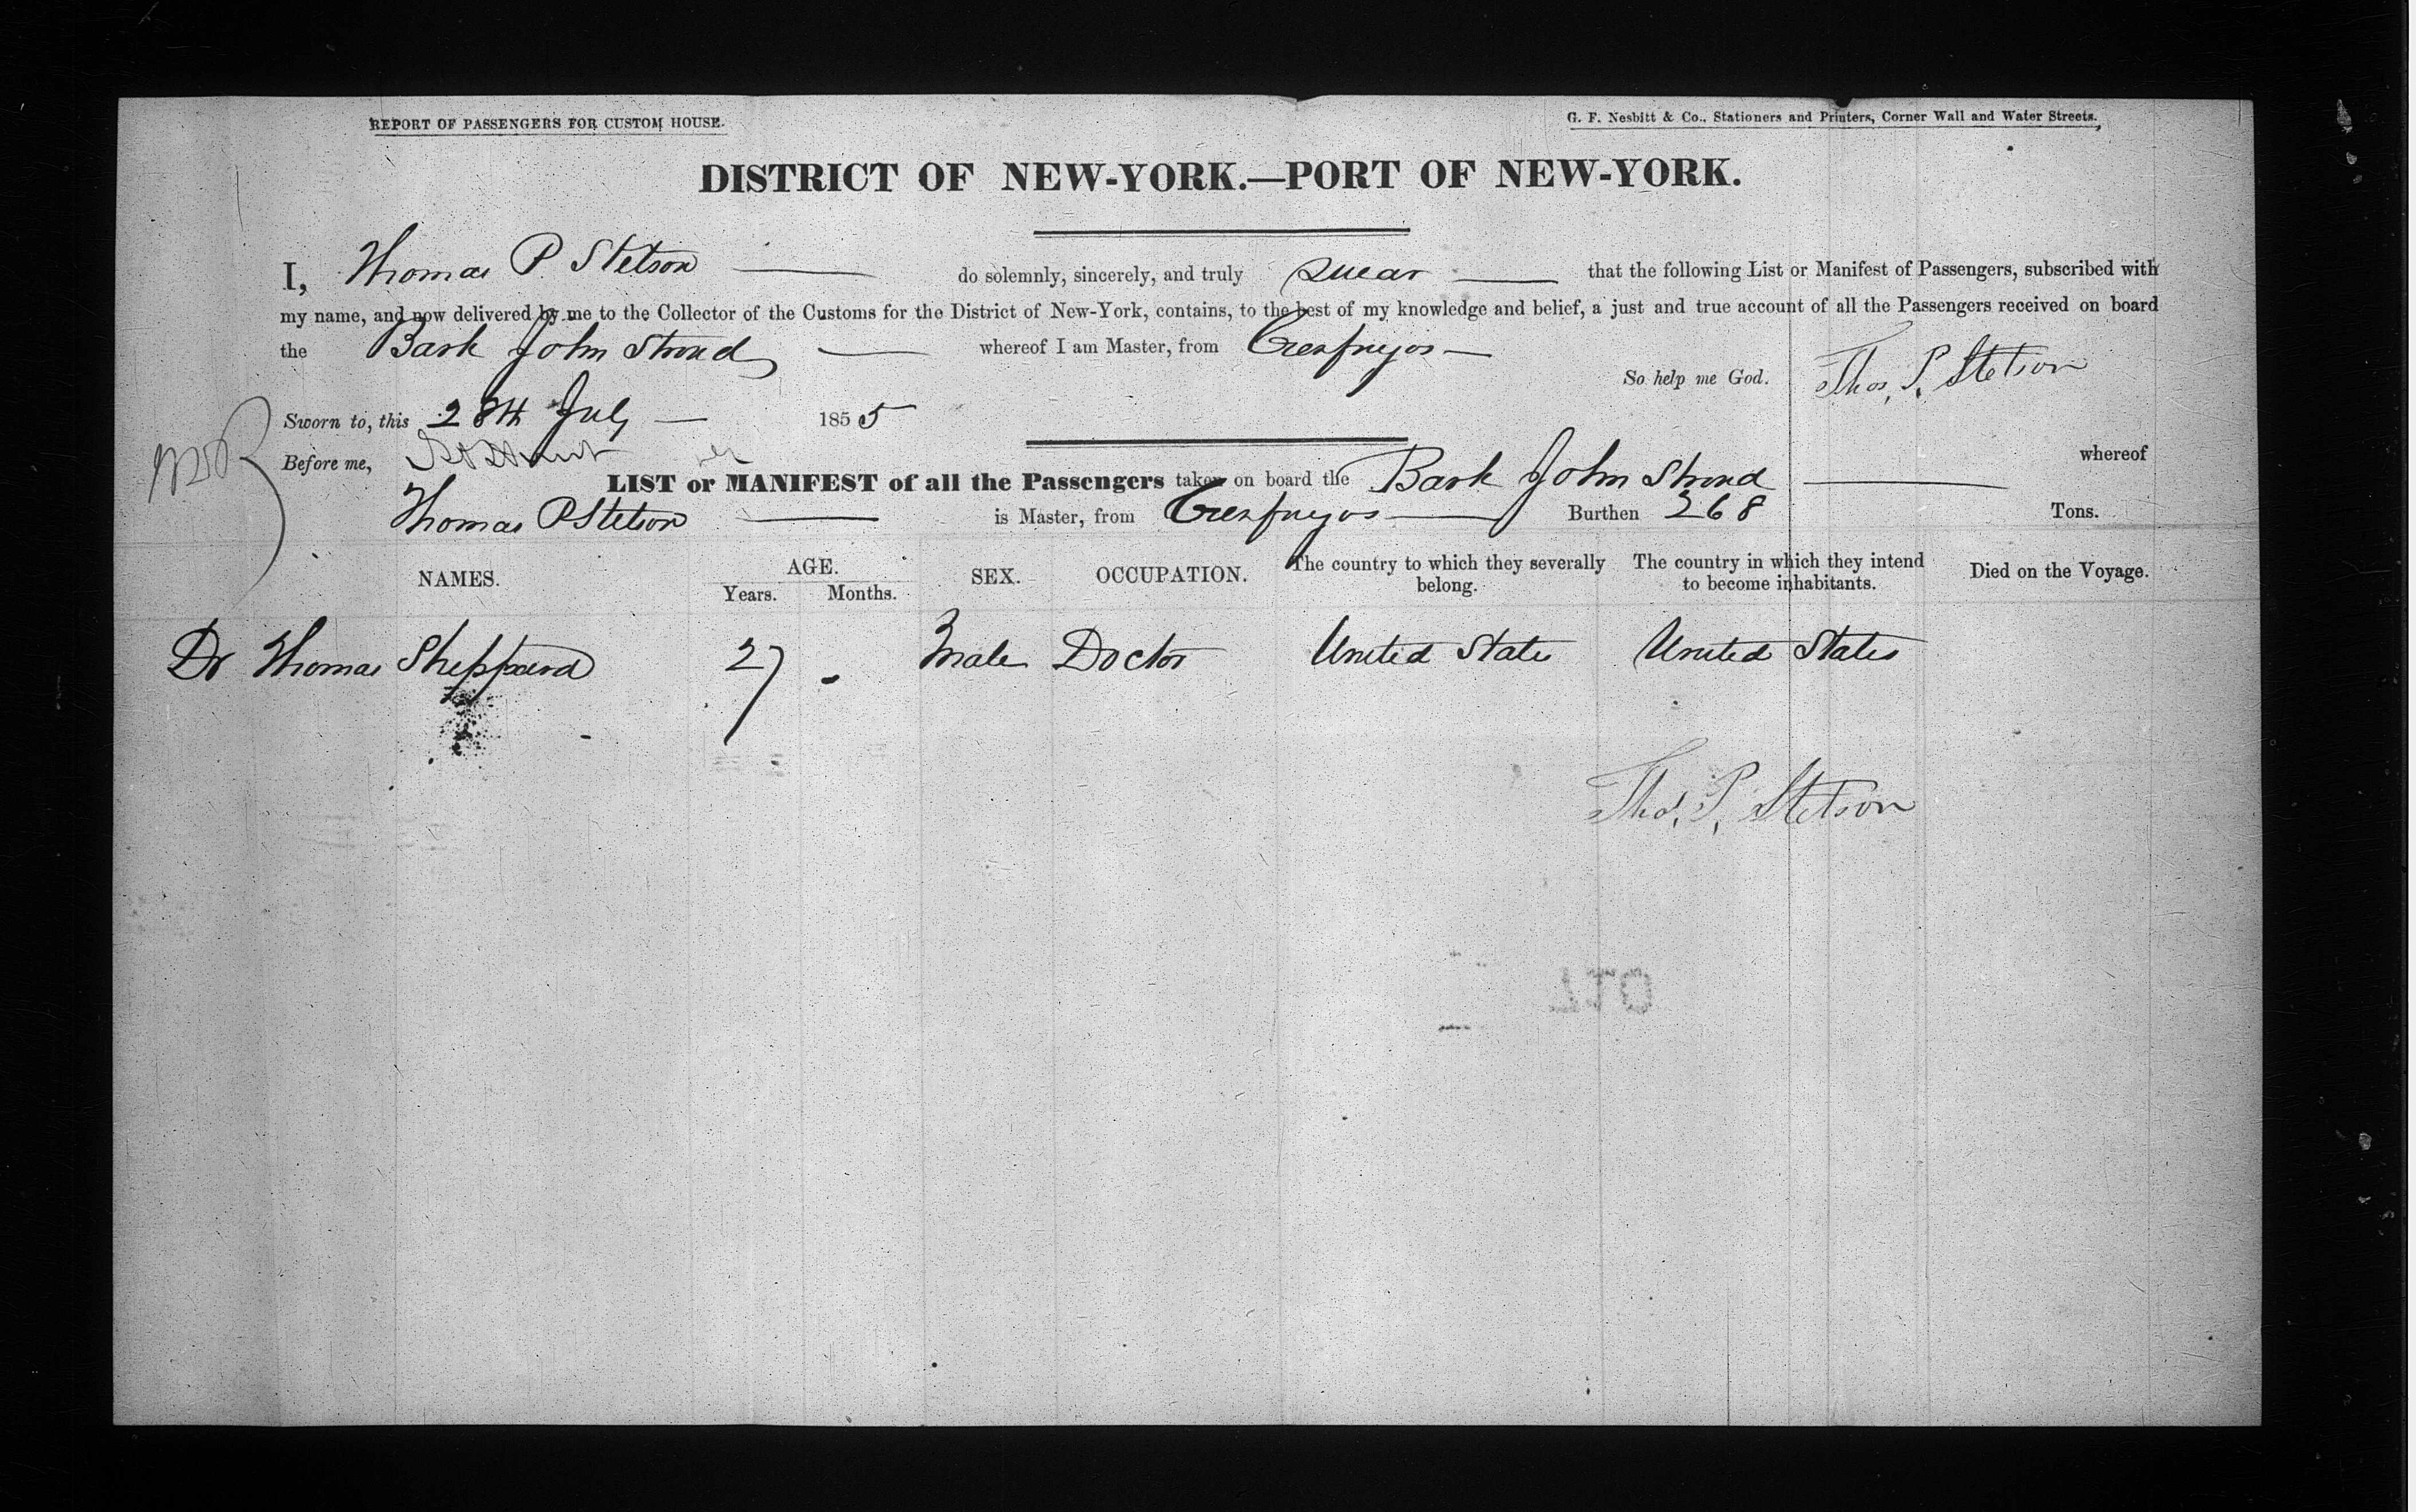 REPORT OF PASSENGERS FOR CUSTOM HOUSE.
G. F. Nesbitt & Co., Stationers and Printers, Corner Wall and Water Streets.
DISTRICT OF NEW-YORK.—PORT OF NEW-YORK.
I, Thomas P. Stetson do solemnly, sincerely, and truly swear that the following List or Manifest of Passengers, subscribed with
my name, and now delivered by me to the Collector of the Customs for the District of New-York, contains, to the best of my knowledge and belief, a just and true account of all the Passengers received on board
the Bark John Stroud whereof I am Master, from Cienfuegos
So help me God. Thos. P. Stetson
Sworn to, this 28th July 1855
Before me,
LIST or MANIFEST of all the Passengers taken on board the Bark John Stroud whereof
Thomas P Stetson is Master, from Cienfuegos Burthen 268 Tons.
NAMES. AGE. Years. Months. SEX. OCCUPATION. The country to which they severally belong. The country in which they intend to become inhabitants. Died on the Voyage.
Dr Thomas Sheppard 27 - Male Doctor United States United States
Thos. P. Stetson